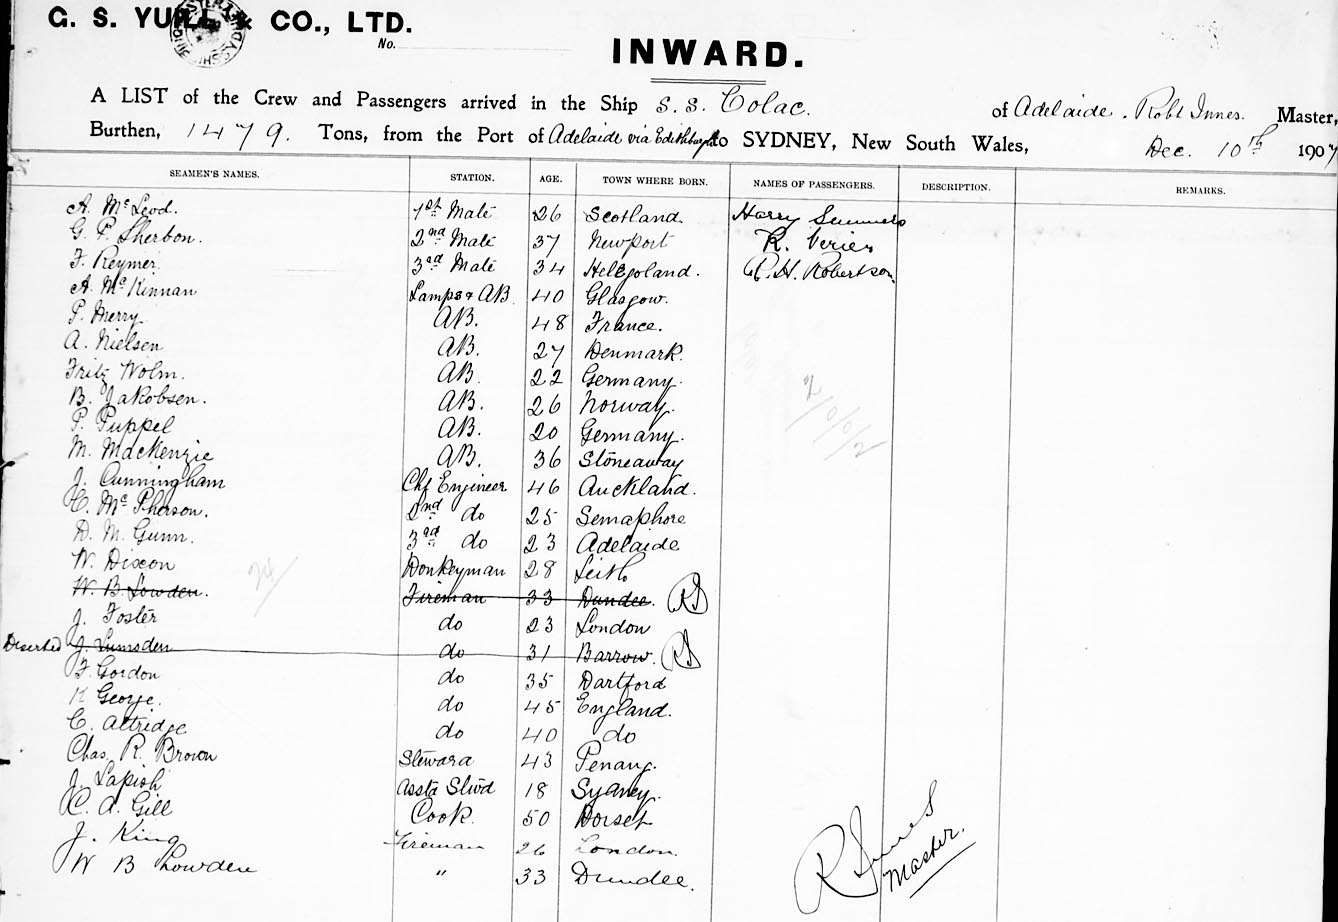 G. S. YUILL & CO., LTD.
No.
INWARD.
A LIST of the Crew and Passengers arrived in the Ship S. S. Colac. of Adelaide. Robt Innes. Master,
Burthen, 1479. Tons, from the Port of Adelaide via Edithburgh to SYDNEY, New South Wales, Dec. 10th 1907
SEAMEN'S NAMES. STATION. AGE. TOWN WHERE BORN. NAMES OF PASSENGERS. DESCRIPTION. REMARKS.
A. McLeod. 1st Mate 26 Scotland. Harry Summers
G. P. Sherbon. 2nd Mate 37 Newport R.
F. Reymer. 3rd Mate 34 Heligoland. R. H. Robertson.
A. McKinnan Lamps & AB. 40 Glasgow.
P. Merry AB. 48 France.
A. Nielsen AB. 27 Denmark.
Fritz Wolm. AB. 22 Germany.
B. Jakobsen. AB. 26 Norway.
P. Puppel AB. 20 Germany.
M. MacKenzie AB. 36 Stoneaway
J. Cunningham Chf Engineer 46 Auckland.
C. McPherson. 2nd do 25 Semaphore
D. M. Gunn. 3rd do 23 Adelaide
W. Dixon Donkeyman 28 Leith
W. B. Lowden. Fireman 33 Dundee. RI
J. Foster do 23 London
Deserted J. Lumsden do 31 Barrow. RI
F. Gordon do 35 Dartford
H George. do 45 England.
C. Attridge do 40 do
Chas. R. Brown Steward 43 Penang.
J. Lapish Asst Stwd 18 Sydney.
C. A. Gill Cook. 50 Dorset
J. King Fireman 26 London.
W B Lowden " 33 Dundee.
24/
R Innes
Master.